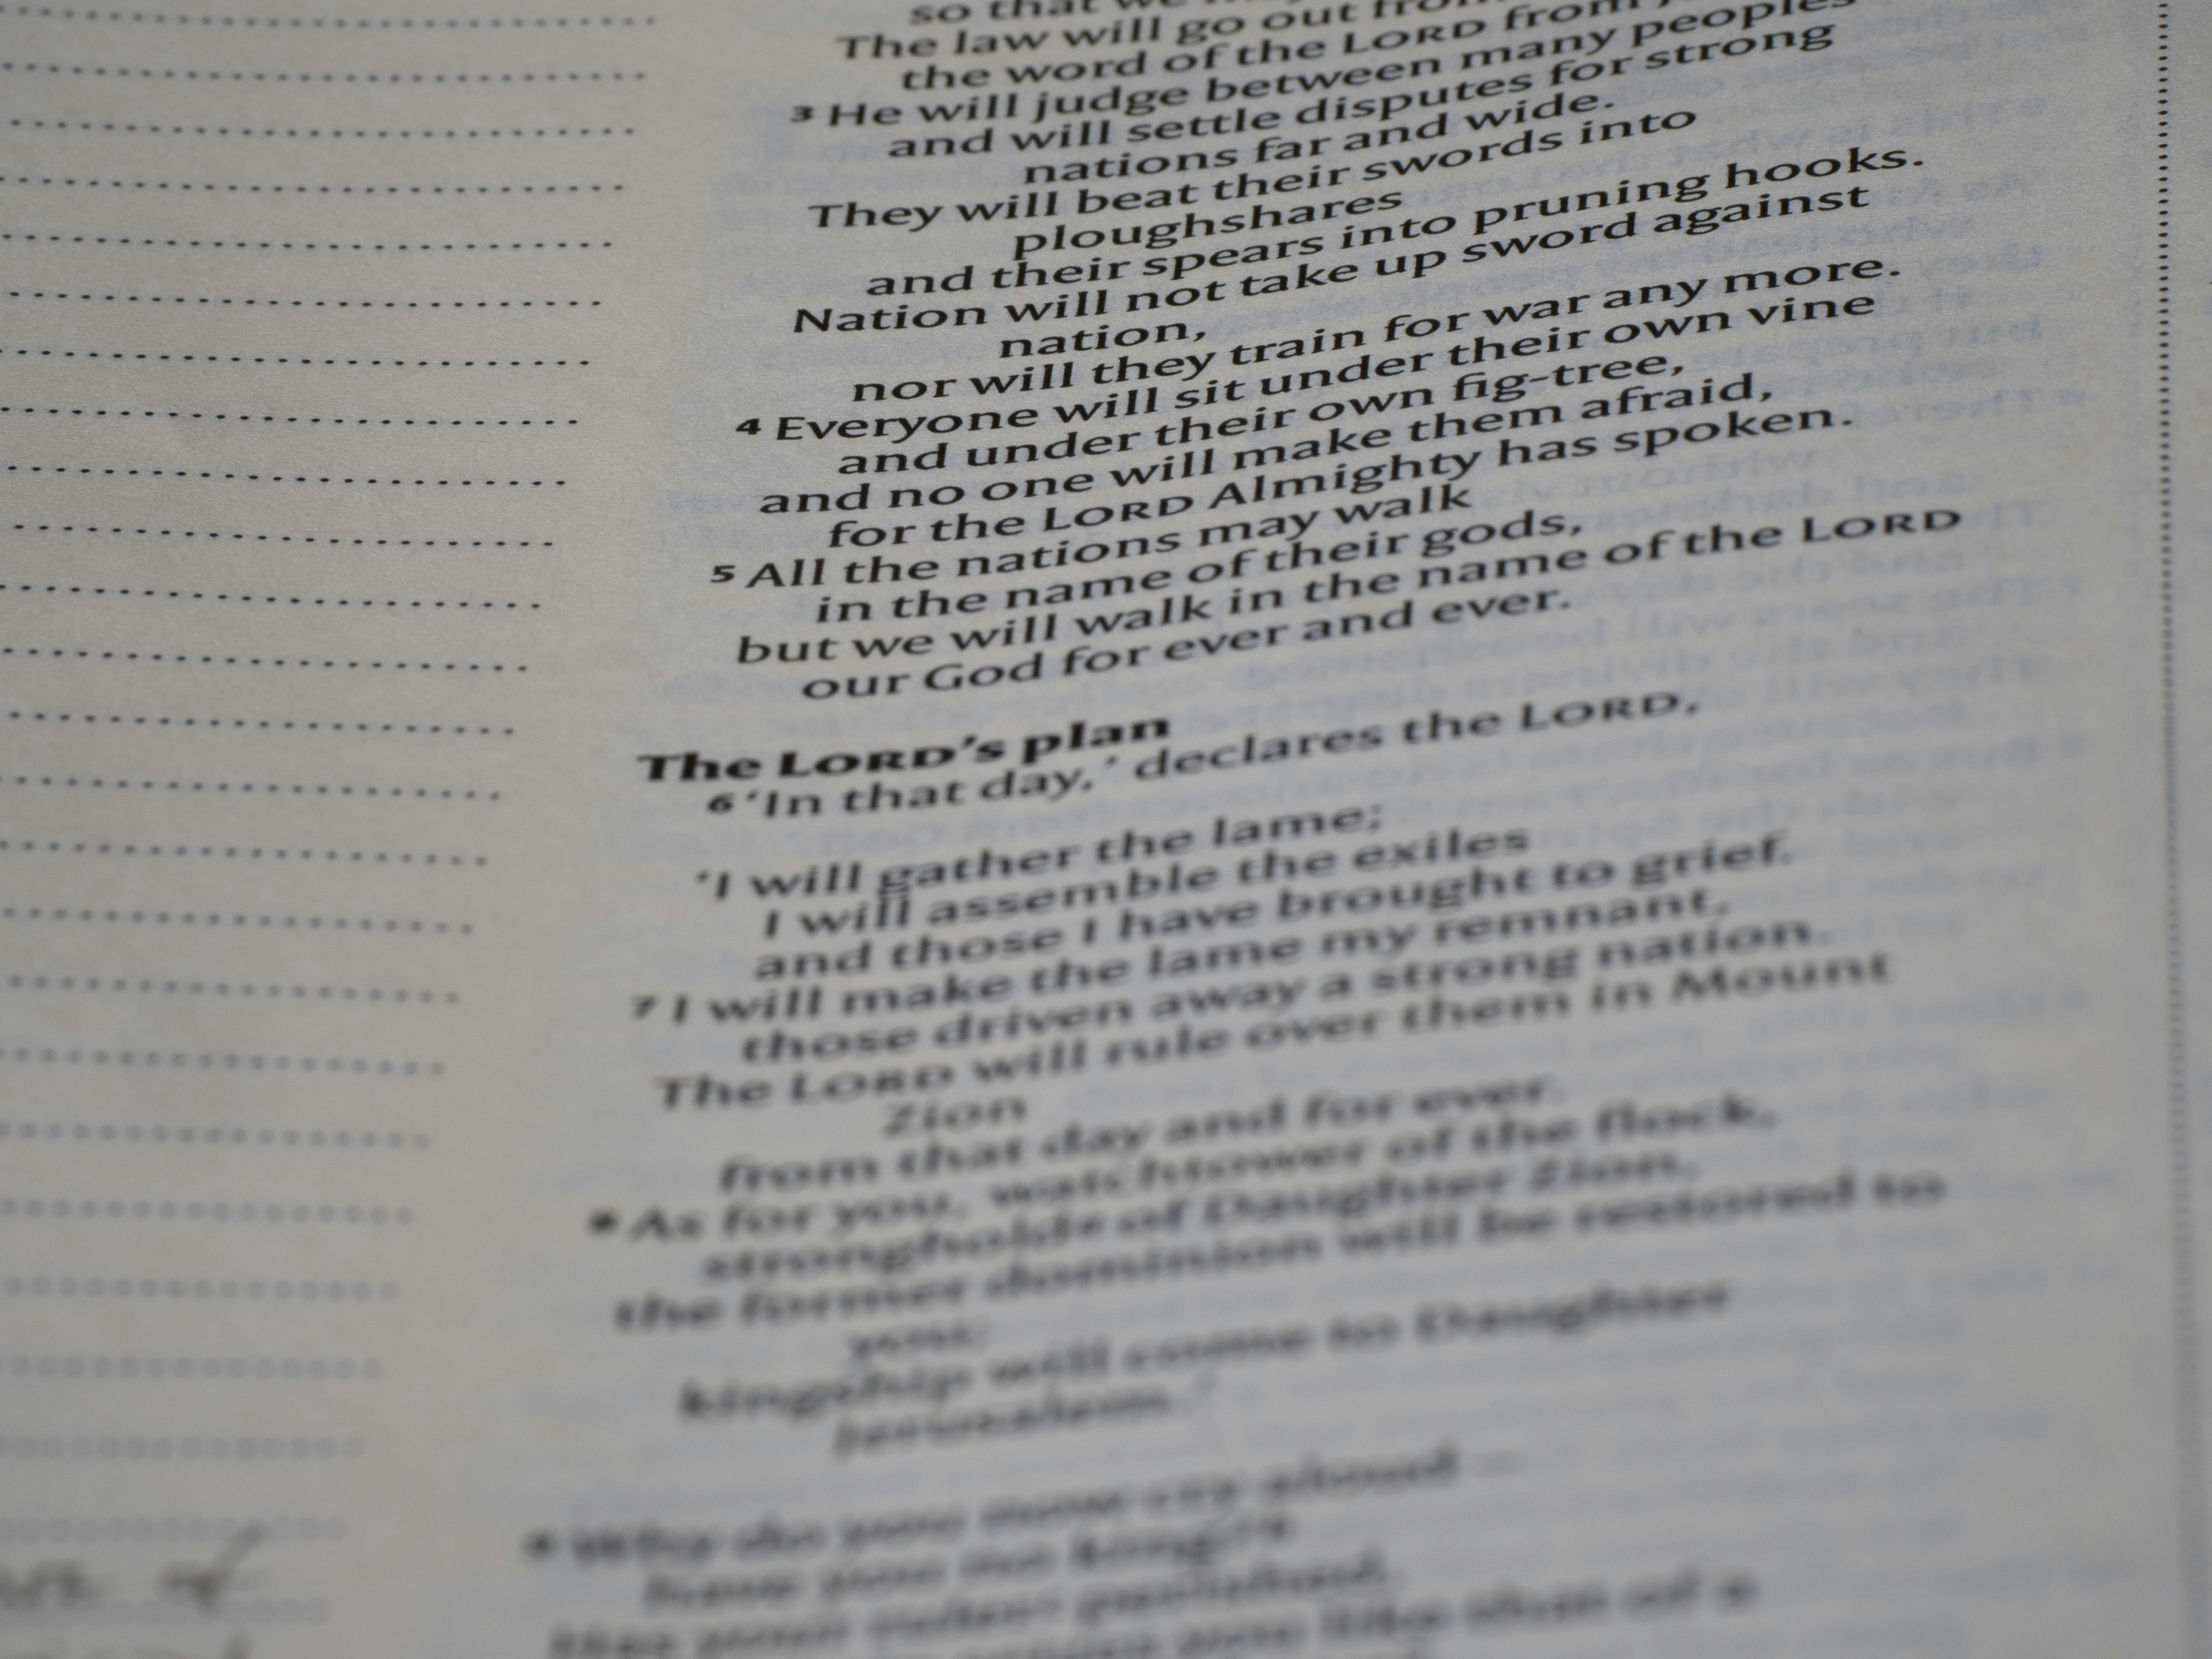 so that we
The law will go out from
the word of the LORD from
3 He will judge between many peoples
and will settle disputes for strong
nations far and wide.
They will beat their swords into
ploughshares
and their spears into pruning hooks.
Nation will not take up sword against
nation,
nor will they train for war any more.
4 Everyone will sit under their own vine
and under their own fig-tree,
and no one will make them afraid,
for the LORD Almighty has spoken.
5 All the nations may walk
in the name of their gods,
but we will walk in the name of the LORD
our God for ever and ever.
The LORD’s plan
6 ‘In that day,’ declares the LORD,
‘I will gather the lame;
I will assemble the exiles
and those I have brought to grief.
7 I will make the lame my remnant,
those driven away a strong nation.
The LORD will rule over them in Mount
Zion
from that day and for ever.
8 As for you, watchtower of the flock,
stronghold of Daughter Zion,
the former dominion will be restored to
you;
kingship will come to Daughter
Jerusalem.’
9 Why do you now cry aloud –
have you no king